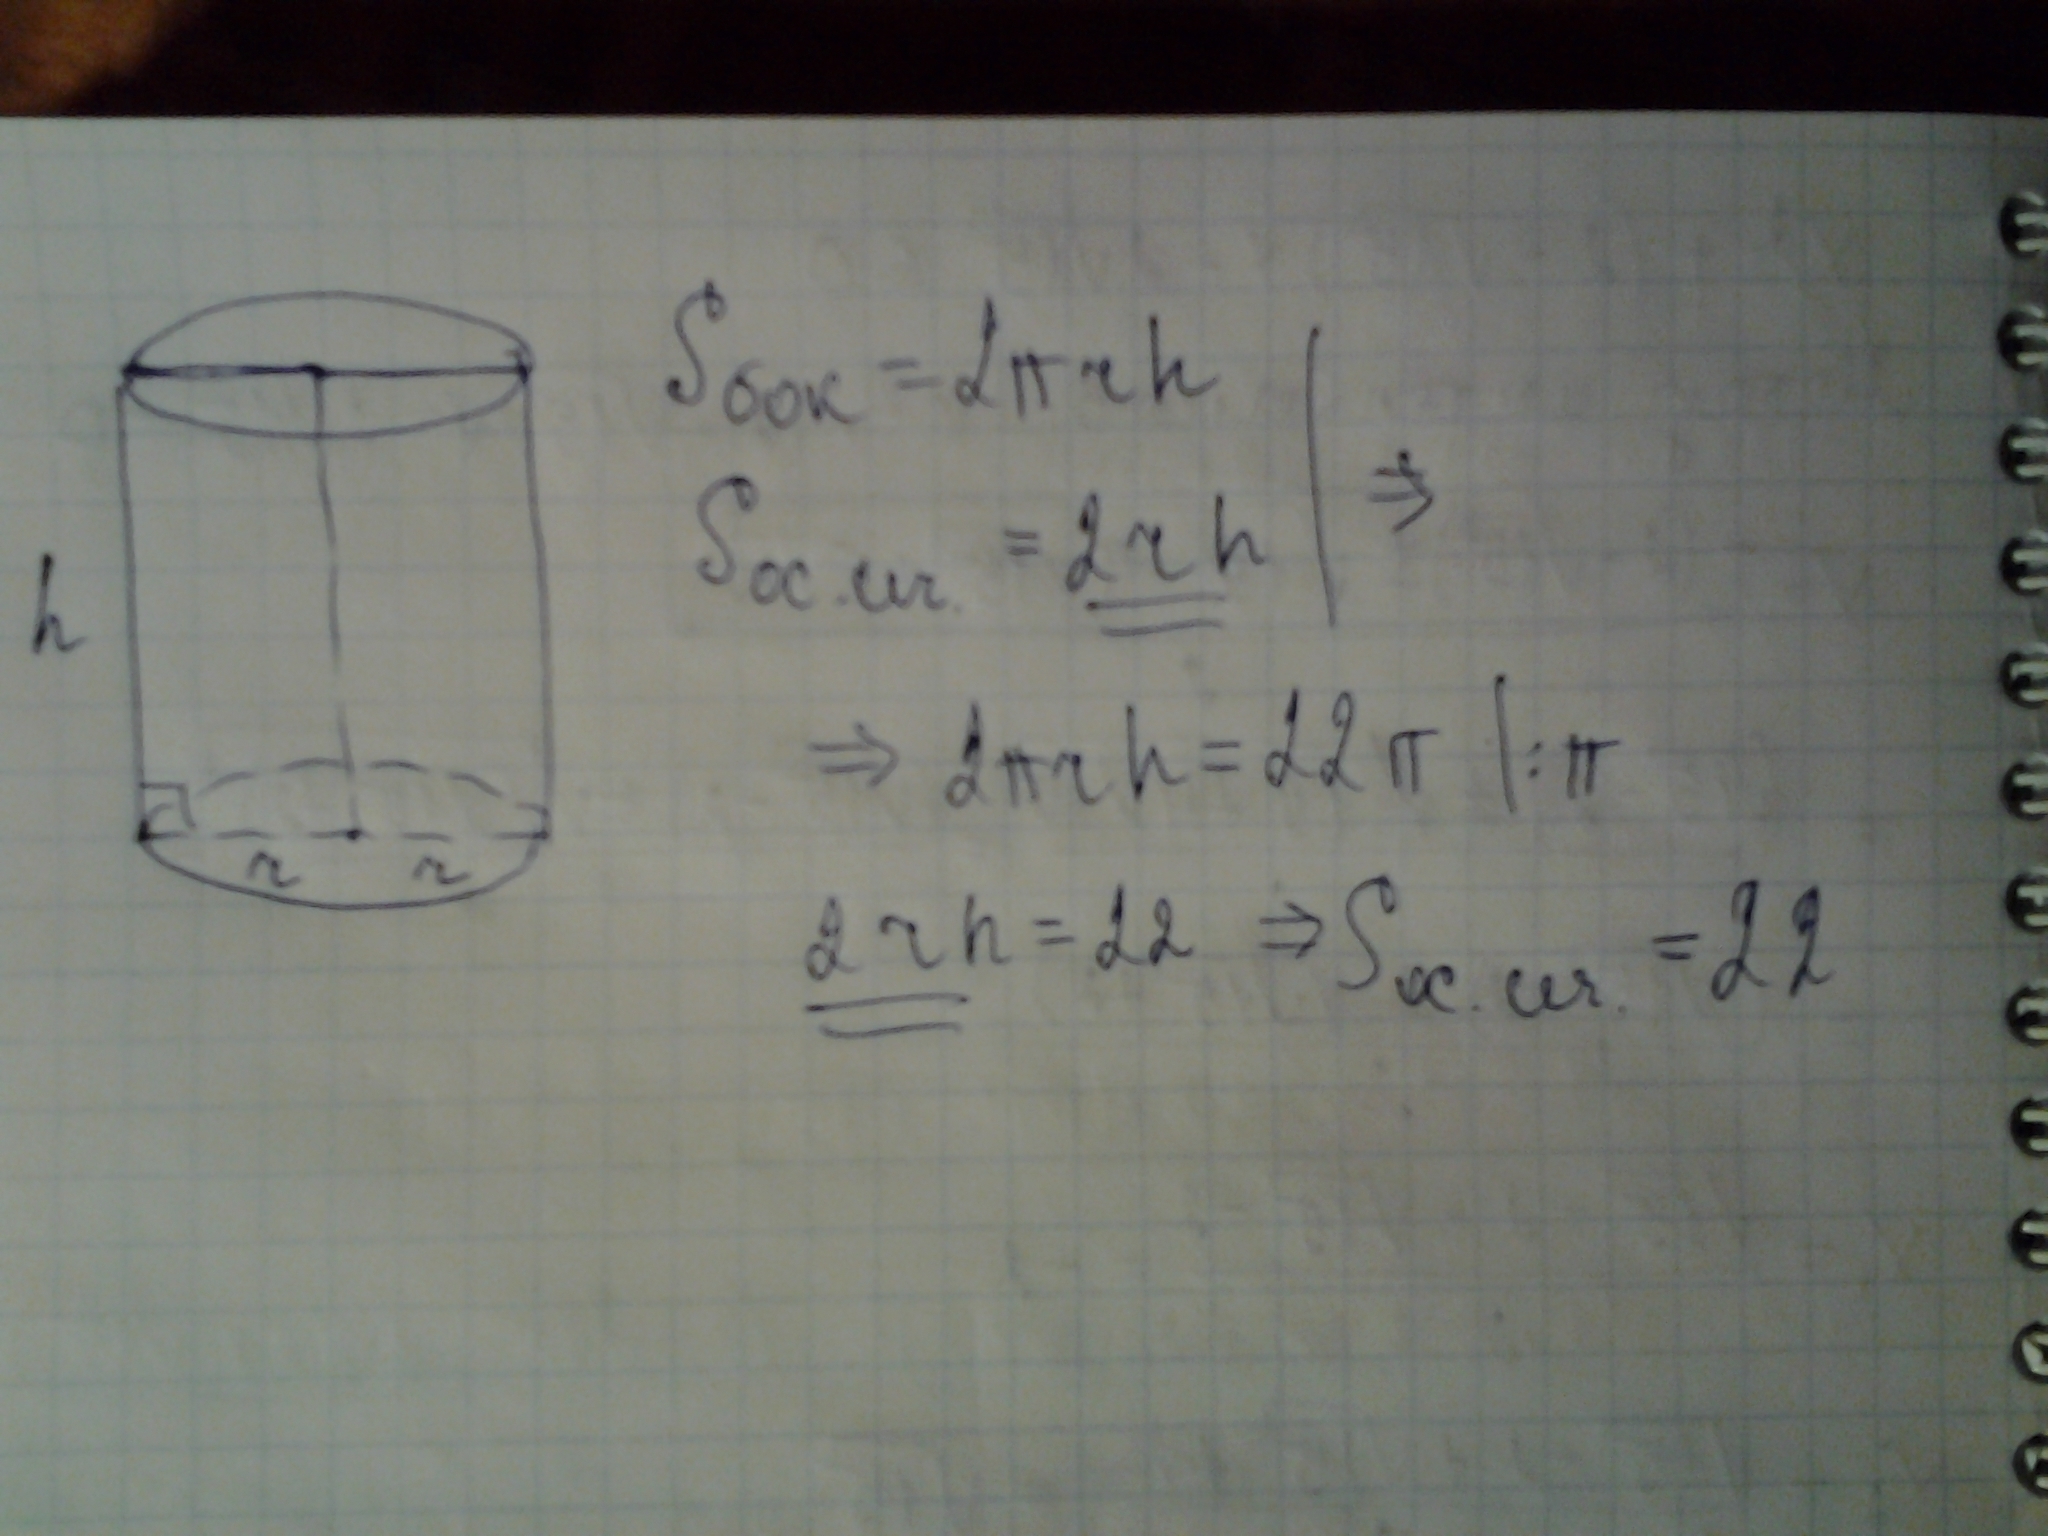 h
r r
Sбок = 2πrh
Sос.сеч. = 2rh | ⇒
⇒ 2πrh = 22π | : π
2rh = 22 ⇒ Sос.сеч. = 22